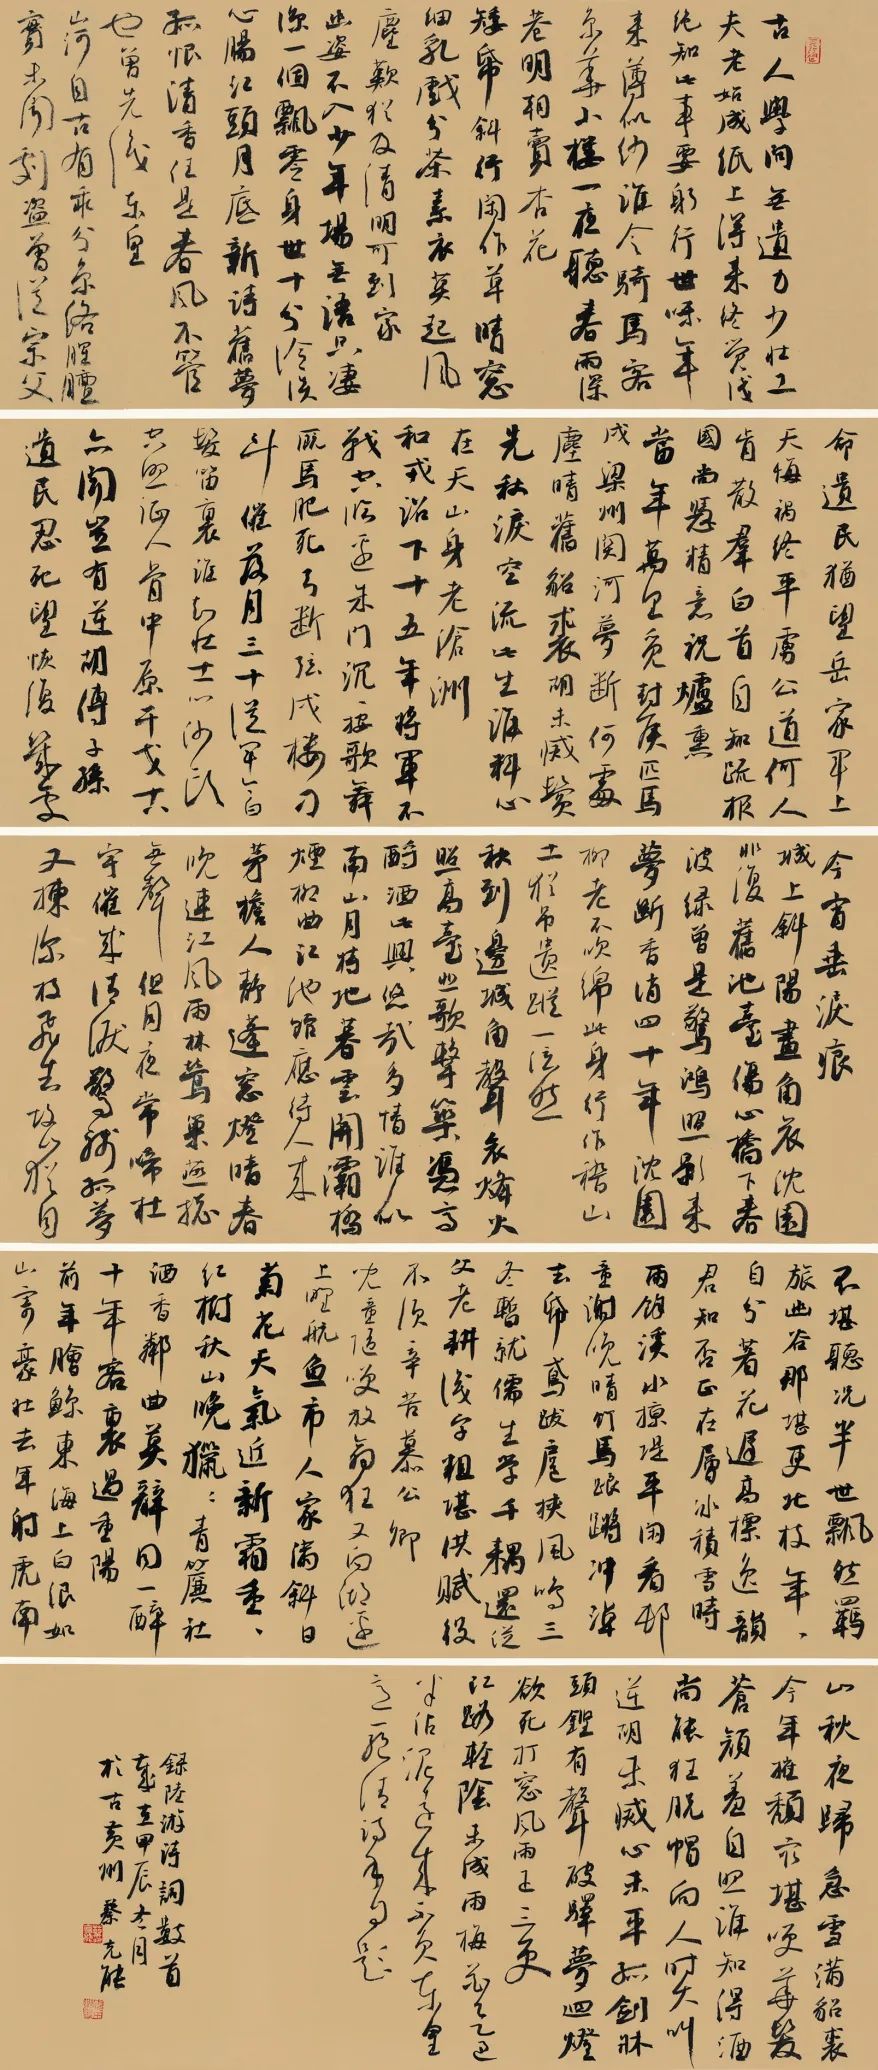 古人學問無遺力少壯工
夫老始成紙上得來終覺淺
絕知此事要躬行世味年
來薄似紗誰令騎馬客
京華小樓一夜聽春雨深
巷明朝賣杏花
矮紙斜行閑作草晴窗
細乳戲分茶素衣莫起風
塵歎猶及清明可到家
幽姿不入少年場無語只淒
涼一個飄零身世十分冷淡
心腸江頭月底新詩舊夢
孤恨清香任是春風不管
也曾先識東皇
山河自古有乖分京洛腥膻
實未聞劇盜曾從宗父
命遺民猶望岳家軍上
天悔禍終平虜公道何人
肯散羣白首自知疏報
國尚憑精意祝爐熏
當年萬里覓封侯匹馬
戍梁州關河夢斷何處
塵暗舊貂裘胡未滅鬢
先秋淚空流此生誰料心
在天山身老滄洲
和戎詔下十五年將軍不
戰空臨邊朱門沉沉按歌舞
廄馬肥死弓斷弦戍樓刁
斗催落月三十從軍今白
髮笛裏誰知壯士心沙頭
空照征人骨中原干戈古
亦聞豈有逆胡傳子孫
遺民忍死望恢復幾處
今宵垂淚痕
城上斜陽畫角哀沈園
非復舊池臺傷心橋下春
波綠曾是驚鴻照影來
夢斷香消四十年沈園
柳老不吹綿此身行作稽山
土猶吊遺蹤一泫然
秋到邊城角聲哀烽火
照高臺悲歌擊築憑高
酹酒此興悠哉多情誰似
南山月特地暮雲開灞橋
煙柳曲江池館應待人來
茅檐人靜蓬窗燈暗春
晚連江風雨林鶯巢燕總
無聲但月夜常啼杜
宇催成清淚驚殘孤夢
又揀深枝飛去故山猶自
不堪聽況半世飄然羈
旅幽谷那堪更北枝年、
自分著花遲高標逸韻
君知否正在層冰積雪時
雨餘溪水掠堤平閑看村
童謝晚晴竹馬踉蹡沖淖
去紙鳶跋扈挾風鳴三
冬暫就儒生學千耦還從
父老耕識字粗堪供賦役
不須辛苦慕公卿
兒童隨笑放翁狂又向湖邊
上野航魚市人家滿斜日
菊花天氣近新霜重、
紅樹秋山晚獵、青簾社
酒香鄰曲莫辭同一醉
十年客裏過重陽
前年膾鯨東海上白浪如
山寄豪壯去年射虎南
山秋夜歸急雪滿貂裘
今年摧頹最堪笑華髮
蒼顏羞自照誰知得酒
尚能狂脫帽向人時大叫
逆胡未滅心未平孤劍牀
頭鏗有聲破驛夢回燈
欲死打窗風雨正三更
江路輕陰未成雨梅花欲過
半沾泥遠來不負東皇
意一絕清詩手自題
錄陸游詩詞數首
歲在甲辰六月
於古黃州蔡克能